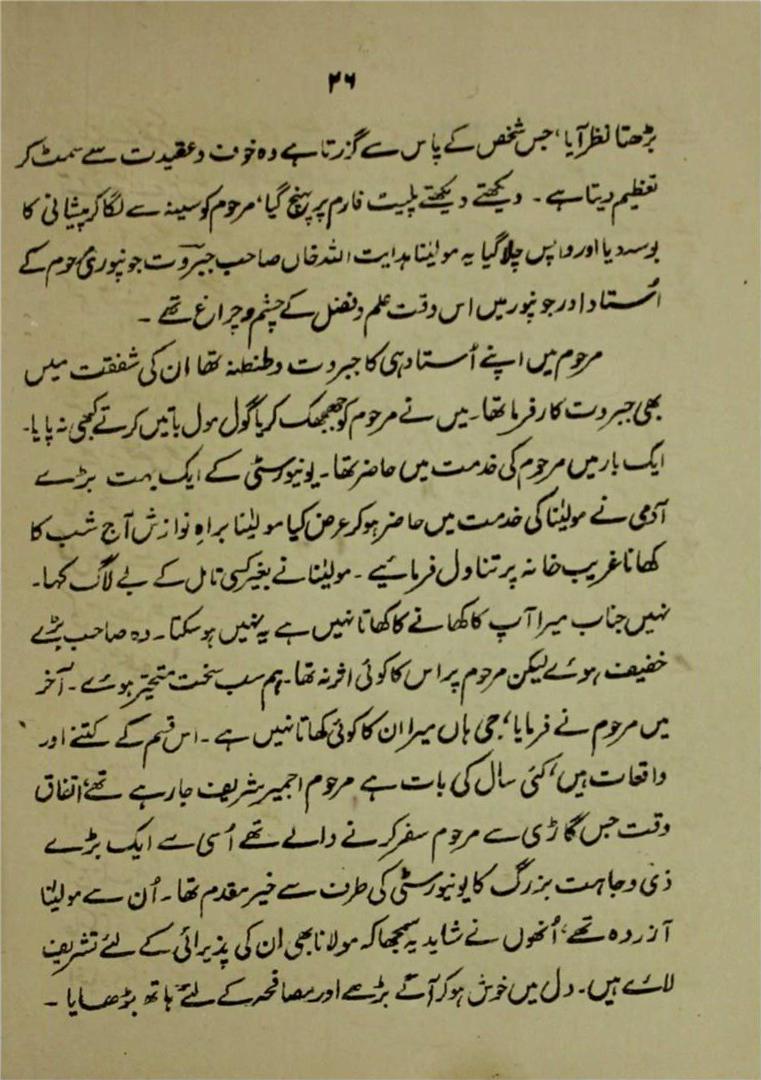 ۲۶
بڑھتا نظر آیا، جس شخص کے پاس سے گزرتا ہے وہ خوف و عقیدت سے سمٹ کر
تعظیم دیتا ہے۔ دیکھتے دیکھتے پلیٹ فارم پر پہنچ گیا، مرحوم کو سینہ سے لگا کر پیشانی کا
بوسہ دیا اور واپس چلا گیا یہ مولینٰا ہدایت اللہ خاں صاحب جبروت جونپوری مرحوم کے
اُستاد اور جونپور میں اس وقت علم و فضل کے چشم و چراغ تھے۔
مرحوم میں اپنے اُستاد ہی کا جبروت و طنطنہ تھا ان کی شفقت میں
بھی جبروت کارفرما تھا۔ میں نے مرحوم کو جھجھک کر یا گول مول باتیں کرتے کبھی نہ پایا۔
ایک بار میں مرحوم کی خدمت میں حاضر تھا۔ یونیورسٹی کے ایک بہت بڑے
آدمی نے مولینٰا کی خدمت میں حاضر ہو کر عرض کیا مولینٰا براہِ نوازش آج شب کا
کھانا غریب خانہ پر تناول فرمائیے۔ مولینٰا نے بغیر کسی تامل کے بے لاگ کہا۔
نہیں جناب میرا آپ کا کھانے کا کھاتا نہیں ہے یہ نہیں ہو سکتا۔ وہ صاحب بڑے
خفیف ہوئے لیکن مرحوم پر اس کا کوئی اثر نہ تھا۔ ہم سب سخت متحیر ہوئے۔ آخر
میں مرحوم نے فرمایا، جی ہاں میرا ان کا کوئی کھاتا نہیں ہے۔ اس قسم کے کتنے اور
واقعات ہیں، کئی سال کی بات ہے مرحوم اجمیر شریف جا رہے تھے، اتفاق
وقت جس گاڑی سے مرحوم سفر کرنے والے تھے اُسی سے ایک بڑے
ذی وجاہت بزرگ کا یونیورسٹی کی طرف سے خیر مقدم تھا۔ اُن سے مولینٰا
آزردہ تھے، اُنھوں نے شاید یہ سمجھا کہ مولانا بھی ان کی پذیرائی کے لئے تشریف
لائے ہیں۔ دل میں خوش ہو کر آگے بڑھے اور مصافحہ کے لئے ہاتھ بڑھایا۔